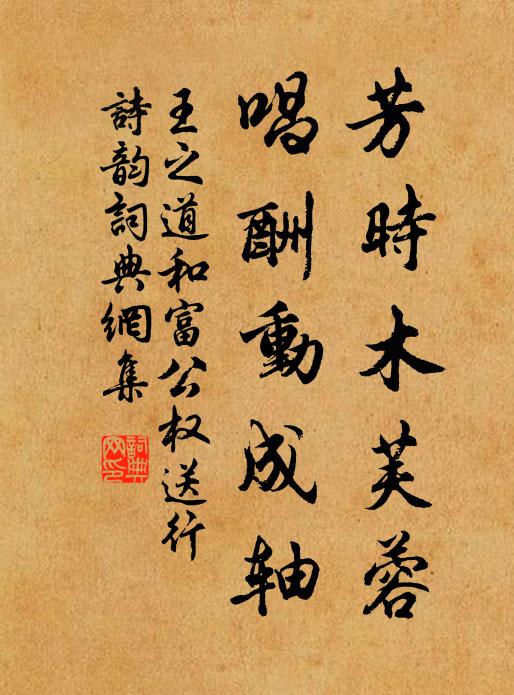 芳時木芙蓉
唱酬動成轴
王之道和富公权送行
詩韵詞典網集
詞典网印